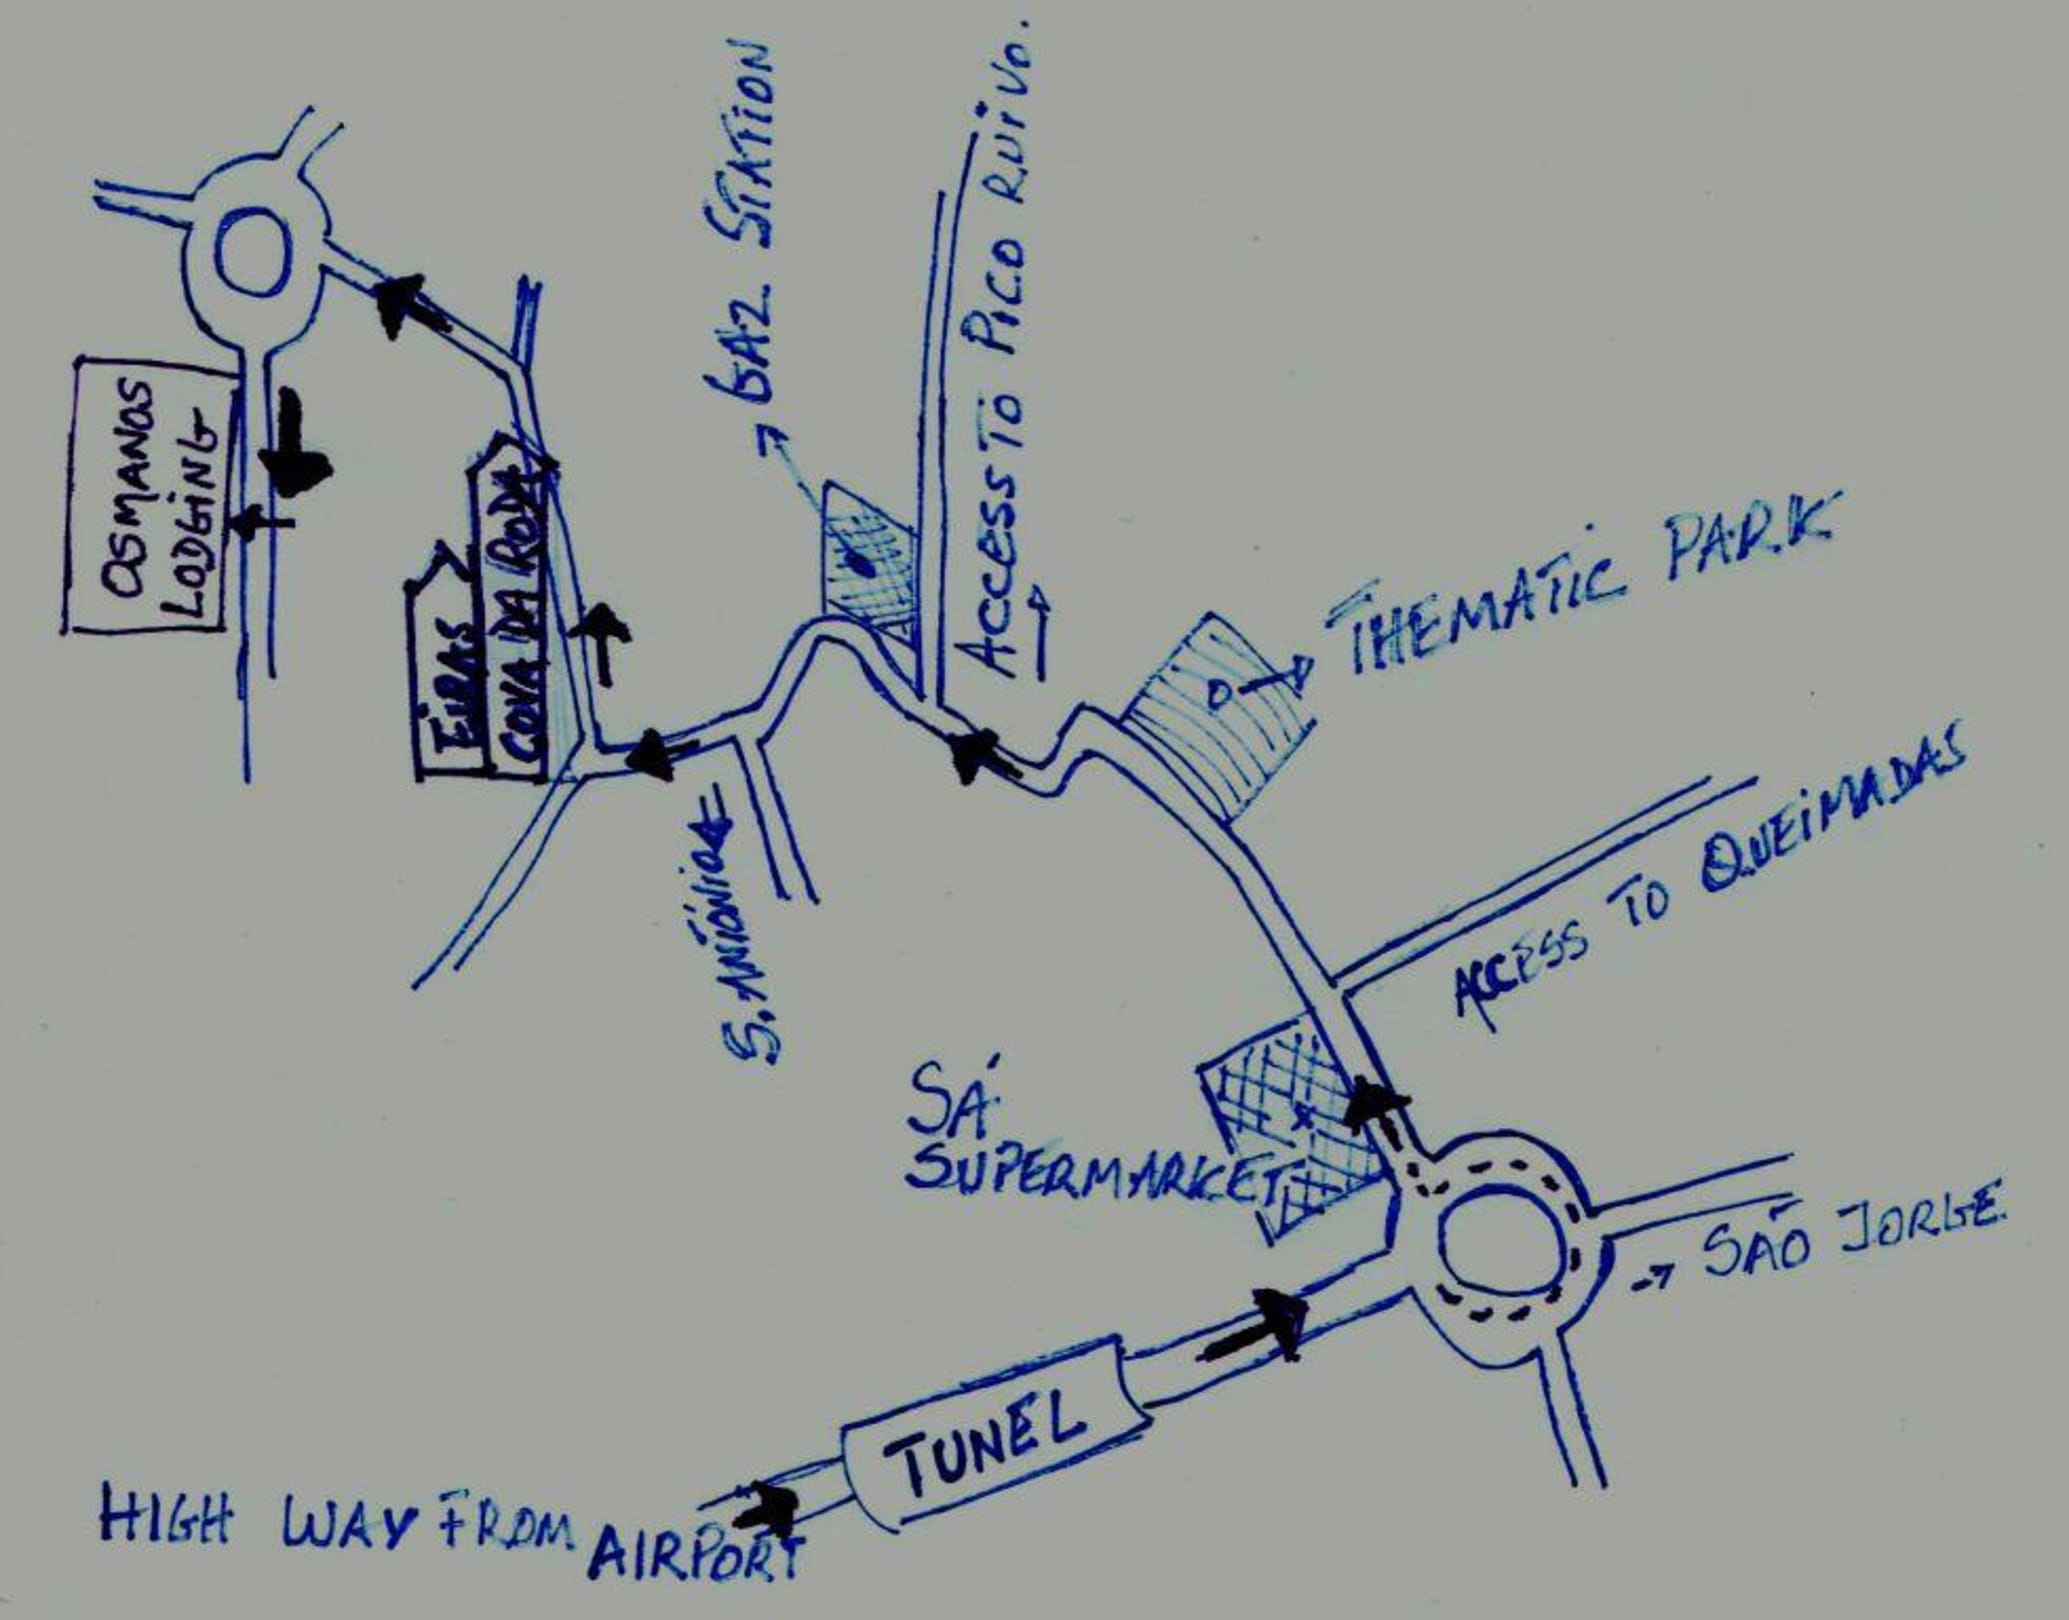 GAZ STATION
ACCESS TO PICO RUIVO.
OSMANOS
LODGING
EIRAS
COVA DA RODA
THEMATIC PARK
ACCESS TO QUEIMADAS
S. ANTÓNIO
SÁ
SUPERMARKET
SÃO JORGE
TUNEL
HIGH WAY FROM AIRPORT